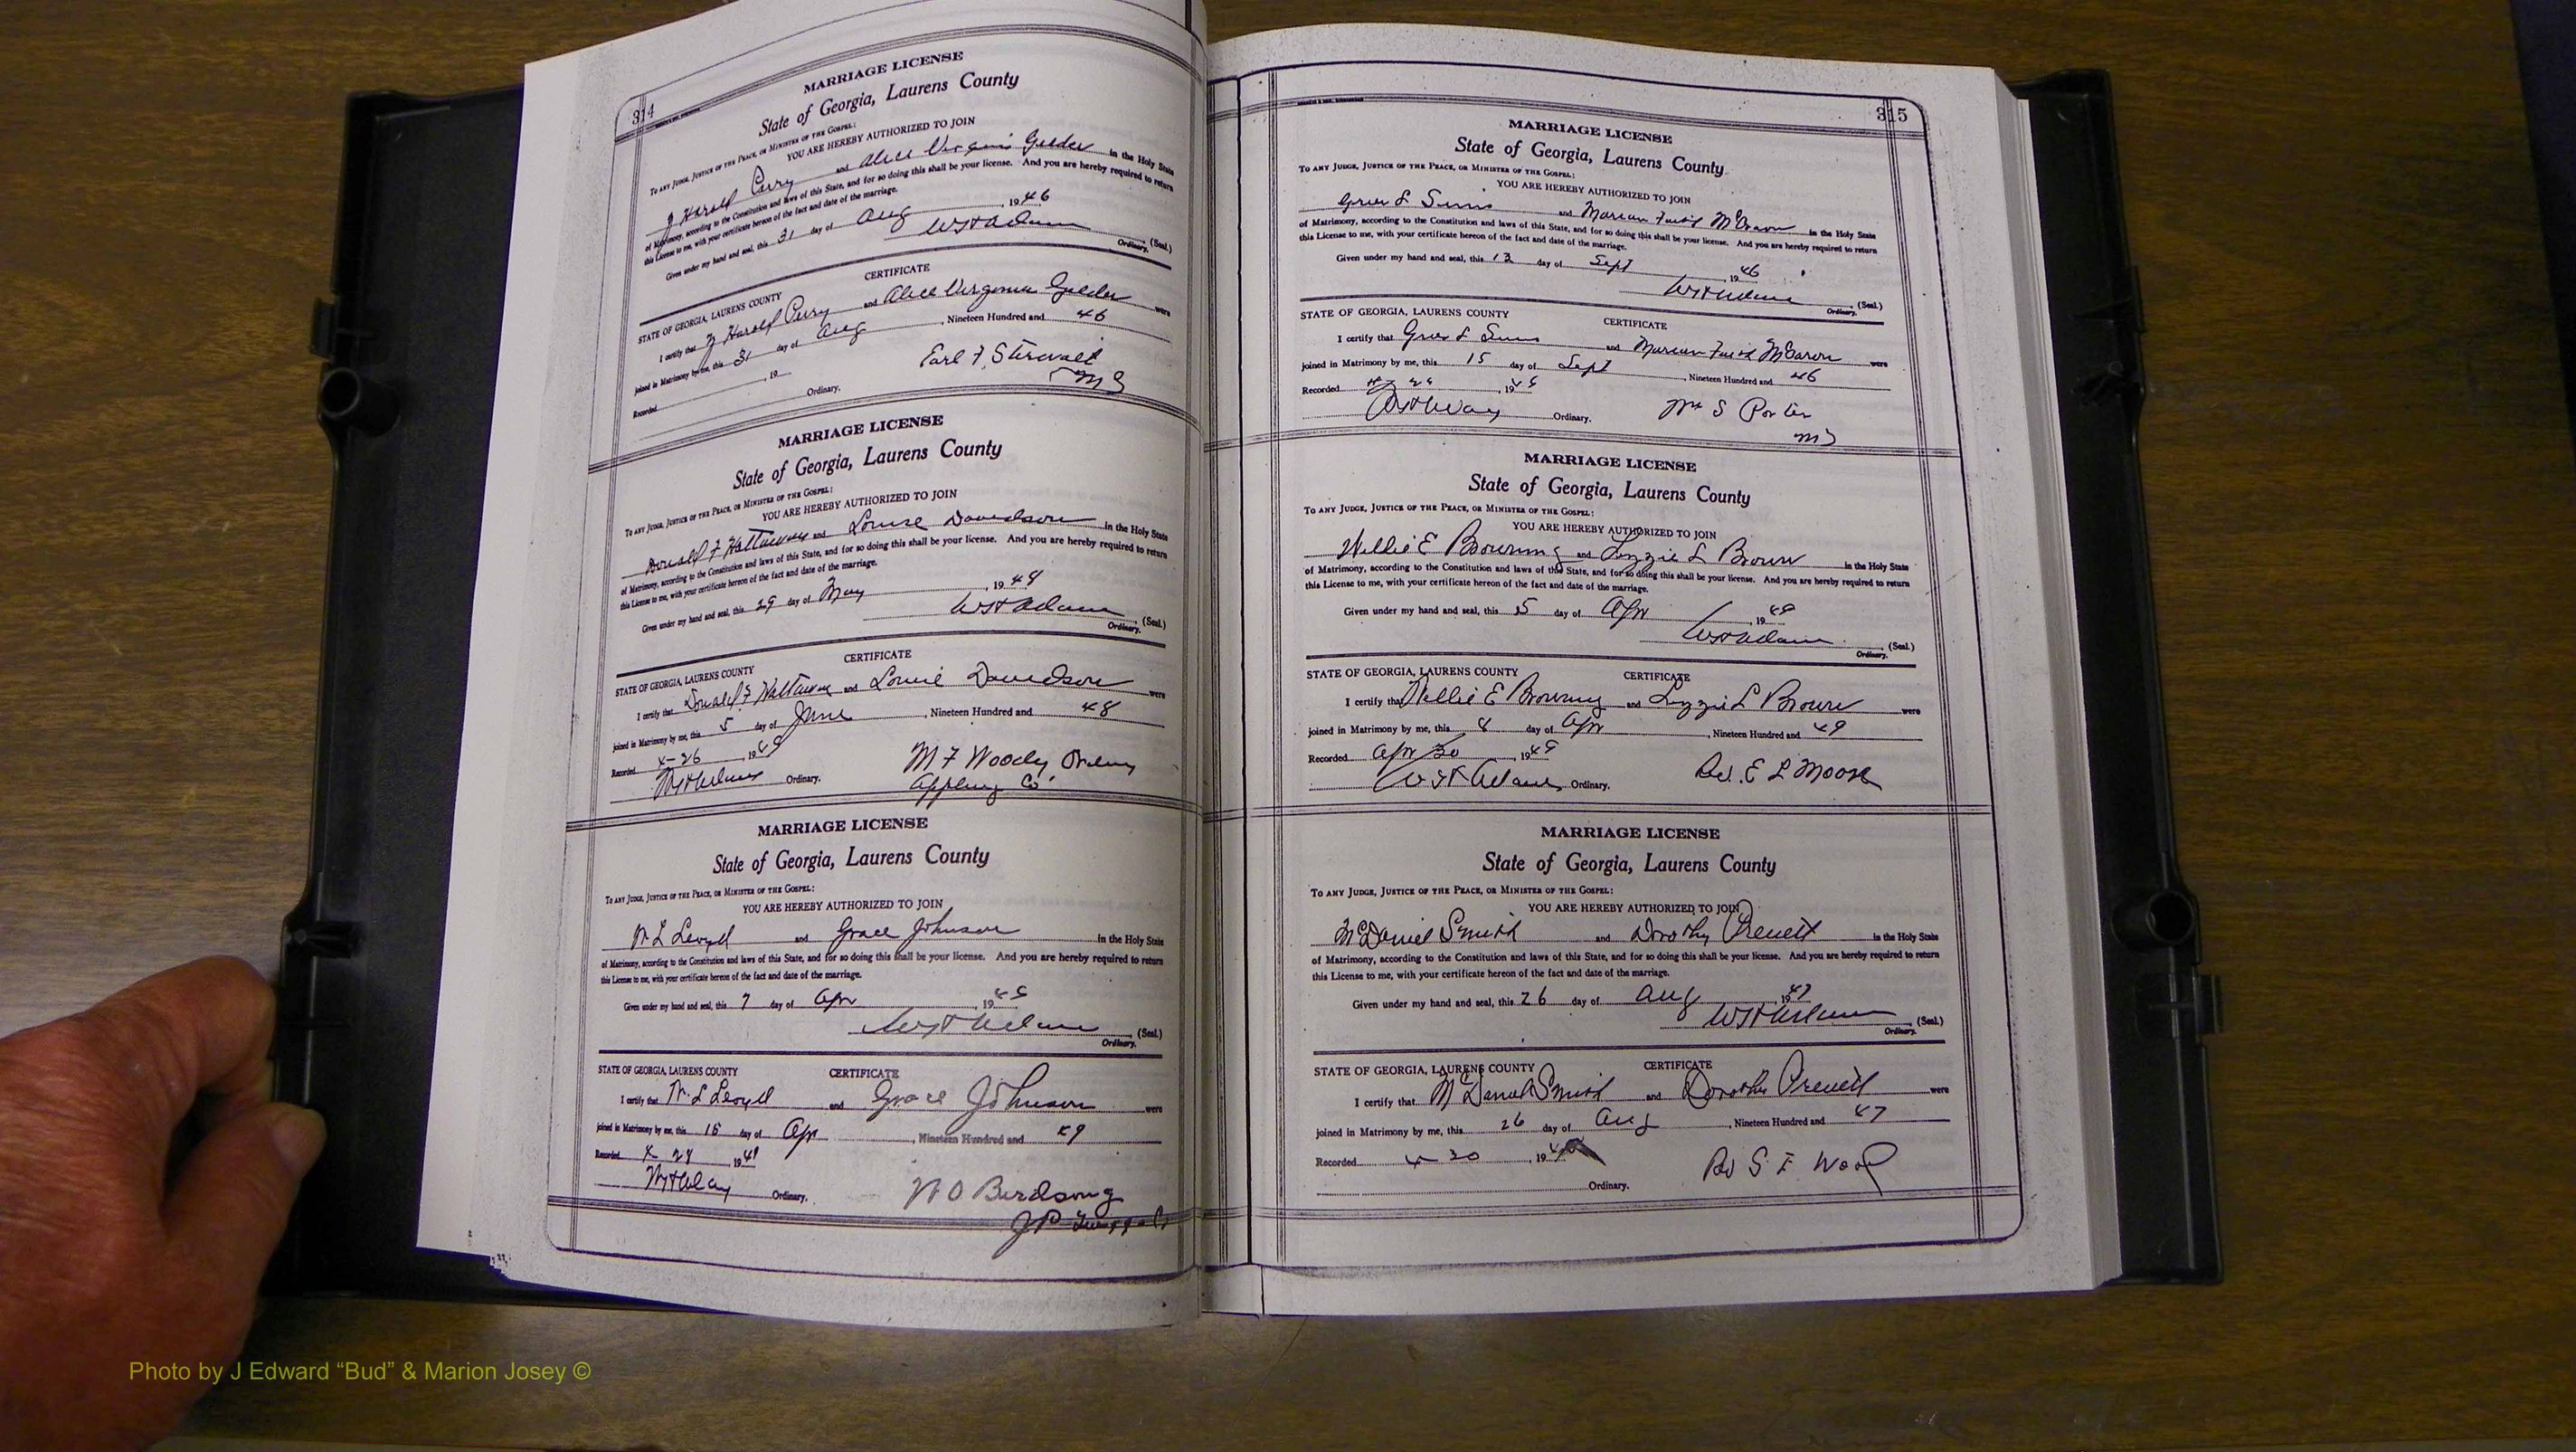 314
MARRIAGE LICENSE
State of Georgia, Laurens County
TO ANY JUDGE, JUSTICE OF THE PEACE, OR MINISTER OF THE GOSPEL:
YOU ARE HEREBY AUTHORIZED TO JOIN
J Harold Perry and Alice Virginia Gelder in the Holy State
of Matrimony, according to the Constitution and laws of this State, and for so doing this shall be your license. And you are hereby required to return
this License to me, with your certificate hereon of the fact and date of the marriage.
Given under my hand and seal, this 31 day of Aug 1946
(Seal.)
Ordinary.
CERTIFICATE
STATE OF GEORGIA, LAURENS COUNTY
I certify that J Harold Perry and Alice Virginia Gelder were
joined in Matrimony by me, this 31 day of Aug, Nineteen Hundred and 46
Recorded , 19
Earl F. Stirewalt
Ordinary.
MG
MARRIAGE LICENSE
State of Georgia, Laurens County
TO ANY JUDGE, JUSTICE OF THE PEACE, OR MINISTER OF THE GOSPEL:
YOU ARE HEREBY AUTHORIZED TO JOIN
Donald F Hattaway and Louise Davidson in the Holy State
of Matrimony, according to the Constitution and laws of this State, and for so doing this shall be your license. And you are hereby required to return
this License to me, with your certificate hereon of the fact and date of the marriage.
Given under my hand and seal, this 29 day of May, 1948
WH Adams (Seal.)
Ordinary.
CERTIFICATE
STATE OF GEORGIA, LAURENS COUNTY
I certify that Donald F Hattaway and Louise Davidson were
joined in Matrimony by me, this 5 day of June, Nineteen Hundred and 48
Recorded 4-26, 1949
M F Woody, Ordinary
Ordinary.
Appling Co.
MARRIAGE LICENSE
State of Georgia, Laurens County
TO ANY JUDGE, JUSTICE OF THE PEACE, OR MINISTER OF THE GOSPEL:
YOU ARE HEREBY AUTHORIZED TO JOIN
and Grace Johnson in the Holy State
of Matrimony, according to the Constitution and laws of this State, and for so doing this shall be your license. And you are hereby required to return
this License to me, with your certificate hereon of the fact and date of the marriage.
Given under my hand and seal, this 7 day of Apr 19
(Seal.)
Ordinary.
CERTIFICATE
STATE OF GEORGIA, LAURENS COUNTY
I certify that and Grace Johnson were
joined in Matrimony by me, this day of Apr, Nineteen Hundred and 49
Recorded 19
Ordinary.
Birdsong
JP
315
MARRIAGE LICENSE
State of Georgia, Laurens County
TO ANY JUDGE, JUSTICE OF THE PEACE, OR MINISTER OF THE GOSPEL:
YOU ARE HEREBY AUTHORIZED TO JOIN
and in the Holy State
of Matrimony, according to the Constitution and laws of this State, and for so doing this shall be your license. And you are hereby required to return
this License to me, with your certificate hereon of the fact and date of the marriage.
Given under my hand and seal, this 13 day of Sept, 1946
(Seal.)
Ordinary.
STATE OF GEORGIA, LAURENS COUNTY
CERTIFICATE
I certify that and were
joined in Matrimony by me, this 15 day of Sept, Nineteen Hundred and 46
Recorded , 19
Ordinary.
S Porter
MG
MARRIAGE LICENSE
State of Georgia, Laurens County
TO ANY JUDGE, JUSTICE OF THE PEACE, OR MINISTER OF THE GOSPEL:
YOU ARE HEREBY AUTHORIZED TO JOIN
Willie E Browning and Lizzie L Brown in the Holy State
of Matrimony, according to the Constitution and laws of this State, and for so doing this shall be your license. And you are hereby required to return
this License to me, with your certificate hereon of the fact and date of the marriage.
Given under my hand and seal, this 5 day of Apr, 1949
WH Adams (Seal.)
Ordinary.
STATE OF GEORGIA, LAURENS COUNTY
CERTIFICATE
I certify that Willie E Browning and Lizzie L Brown were
joined in Matrimony by me, this 8 day of Apr, Nineteen Hundred and 49
Recorded Apr 30, 1949
WH Adams, Ordinary.
Rev. E L Moore
MARRIAGE LICENSE
State of Georgia, Laurens County
TO ANY JUDGE, JUSTICE OF THE PEACE, OR MINISTER OF THE GOSPEL:
YOU ARE HEREBY AUTHORIZED TO JOIN
McDaniel Smith and Dorothy Prevett in the Holy State
of Matrimony, according to the Constitution and laws of this State, and for so doing this shall be your license. And you are hereby required to return
this License to me, with your certificate hereon of the fact and date of the marriage.
Given under my hand and seal, this 26 day of Aug, 1947
WH Adams (Seal.)
Ordinary.
STATE OF GEORGIA, LAURENS COUNTY
CERTIFICATE
I certify that McDaniel Smith and Dorothy Prevett were
joined in Matrimony by me, this 26 day of Aug, Nineteen Hundred and 47
Recorded 4-30, 19
Rev S. F. Wood
Ordinary.
Photo by J Edward “Bud” & Marion Josey ©